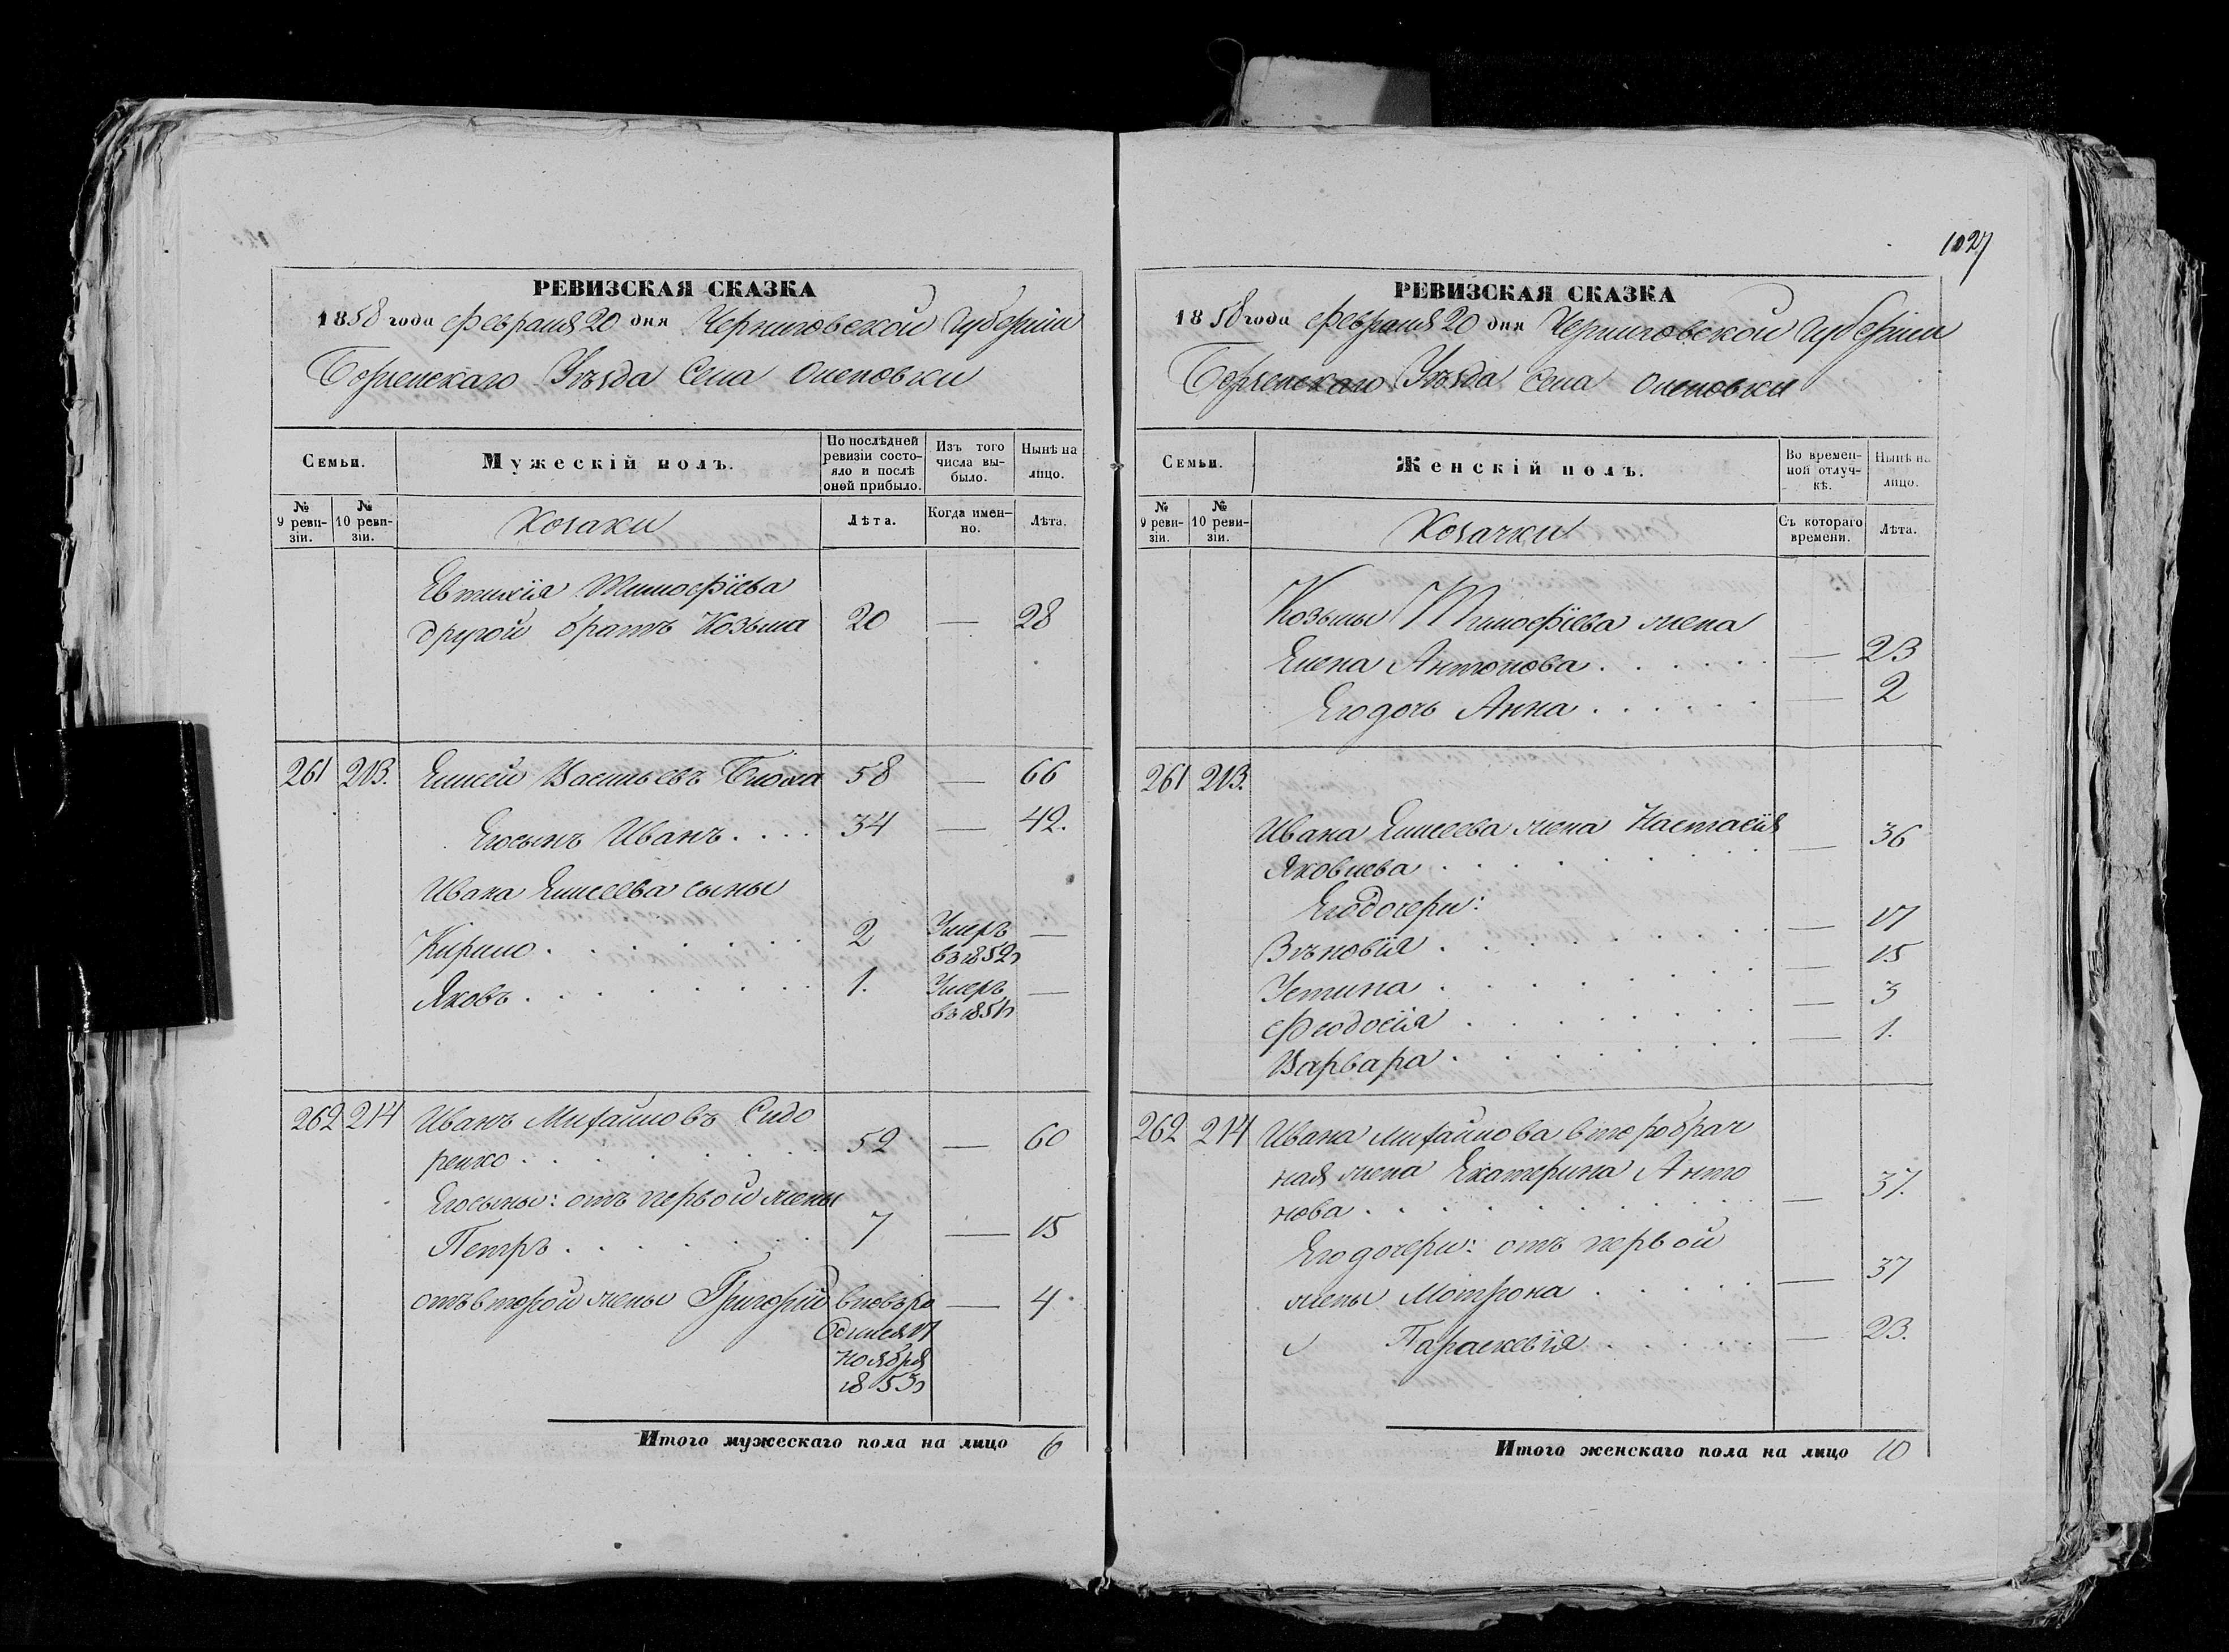 1027
РЕВИЗСКАЯ СКАЗКА
1858 года Февраля 20 дня Черниговской Губерніи
Борзенскаго Уѣзда Села Оленовки
Семьи.
Мужескій полъ.
По послѣдней ревизіи состояло и послѣ оной прибыло.
Изъ того числа выбыло.
Нынѣ на лицо.
№ 9 ревизіи.
№ 10 ревизіи.
Козаки
Лѣта.
Когда именно.
Лѣта.
Евтихія Тимофѣева
другой братъ Козьма 20 — 28
261 213. Елисей Васильевъ Блоха 58 — 66
Его сынъ Иванъ.... 34 — 42.
Ивана Елисеева сыны
Кирило....... 2 Умеръ —
въ 1852г
Яковъ........ 1. Умеръ —
въ 1851г
262 214 Иванъ Михайловъ Сидо
ренко........ 52 — 60
Его сыны: отъ первой жены
Петръ....... 7 — 15
отъ второй жены Григорій вновь ро — 4.
дился 17
ноября
1853г
Итого мужескаго пола на лицо 6
РЕВИЗСКАЯ СКАЗКА
1858 года Февраля 20 дня Черниговской Губерніи
Борзенскаго Уѣзда Села Оленовки
Семьи.
Женскій полъ.
Во временной отлучкѣ.
Нынѣ на лицо.
№ 9 ревизіи.
№ 10 ревизіи.
Козачки
Съ котораго времени.
Лѣта.
Козьмы Тимофѣева жена
Елена Антонова...... — 23
Его дочь Анна...... — 2
261 213.
Ивана Елисеева жена Настасія
Яковлева......... — 36
Его дочери:
Зѣновія........ — 17
Устина........ — 15
Феодосія........ — 3
Варвара........ — 1.
262 214 Ивана Михайлова второбрач
ная жена Екатерина Анто
нова.......... — 37.
Его дочери: отъ первой
жены Мотрона..... — 37
Параскевія...... — 23.
Итого женскаго пола на лицо 10